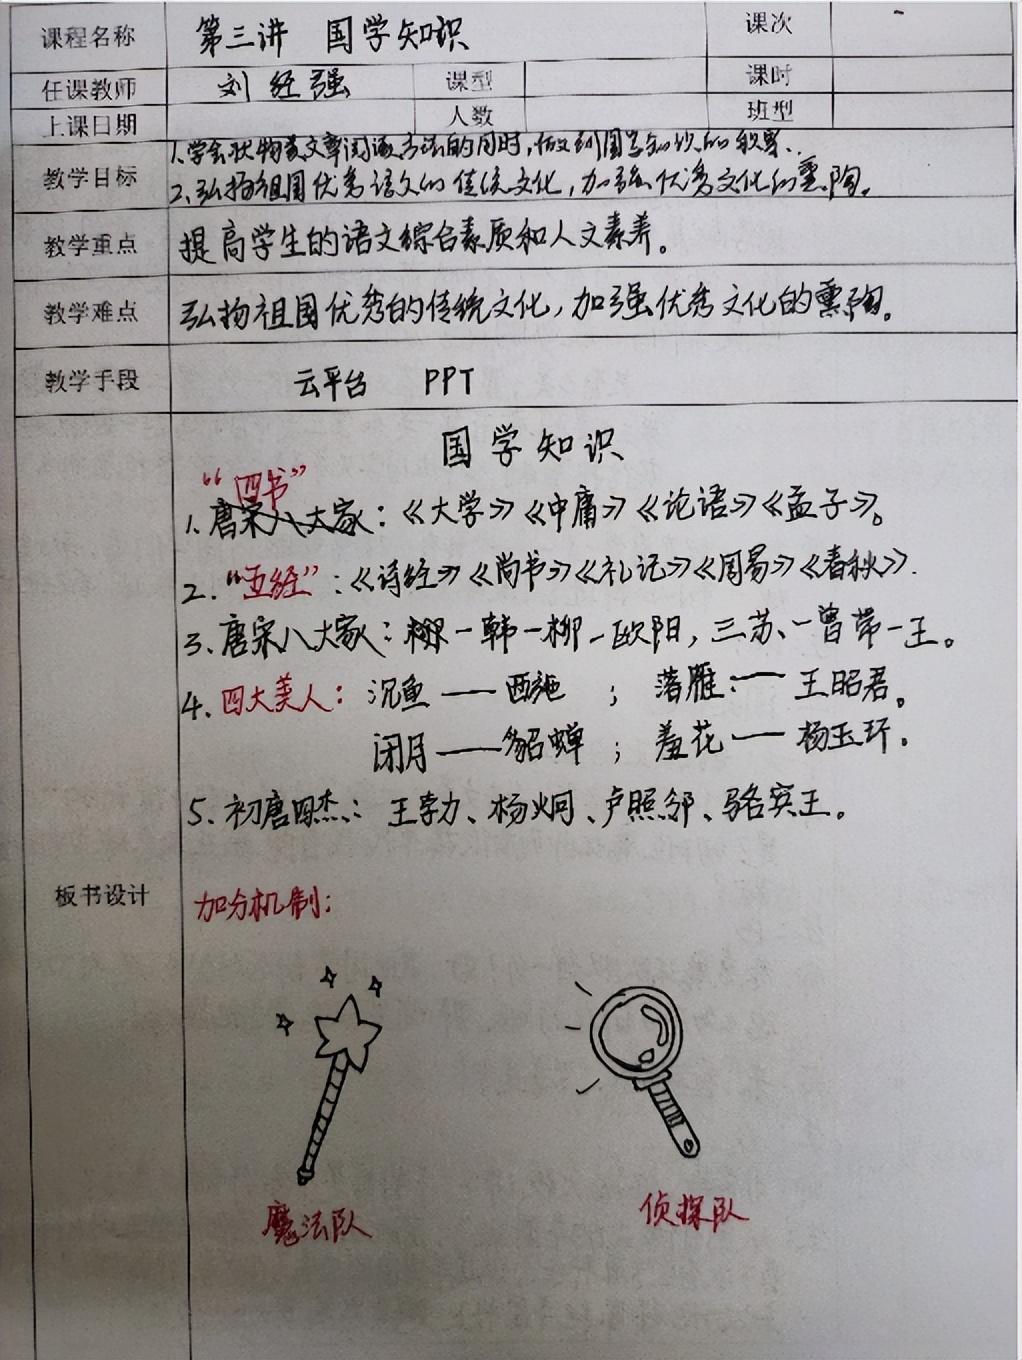 课程名称 第三讲 国学知识 课次
任课教师 刘经强 课型 课时
上课日期 人数 班型
教学目标 1.学会状物类文章阅读方法的同时,做到国学知识的积累.
2.弘扬祖国优秀语文的传统文化,加强优秀文化的熏陶。
教学重点 提高学生的语文综合素质和人文素养。
教学难点 弘扬祖国优秀的传统文化,加强优秀文化的熏陶。
教学手段 云平台 PPT
国学知识
“四书”
1.唐宋八大家:《大学》《中庸》《论语》《孟子》。
2.“五经”:《诗经》《尚书》《礼记》《周易》《春秋》.
3.唐宋八大家:一韩一柳一欧阳,三苏、一曾带一王。
4.四大美人:沉鱼——西施;落雁:——王昭君。
闭月——貂蝉;羞花——杨玉环。
5.初唐四杰:王勃、杨炯、卢照邻、骆宾王。
板书设计
加分机制:
魔法队 侦探队